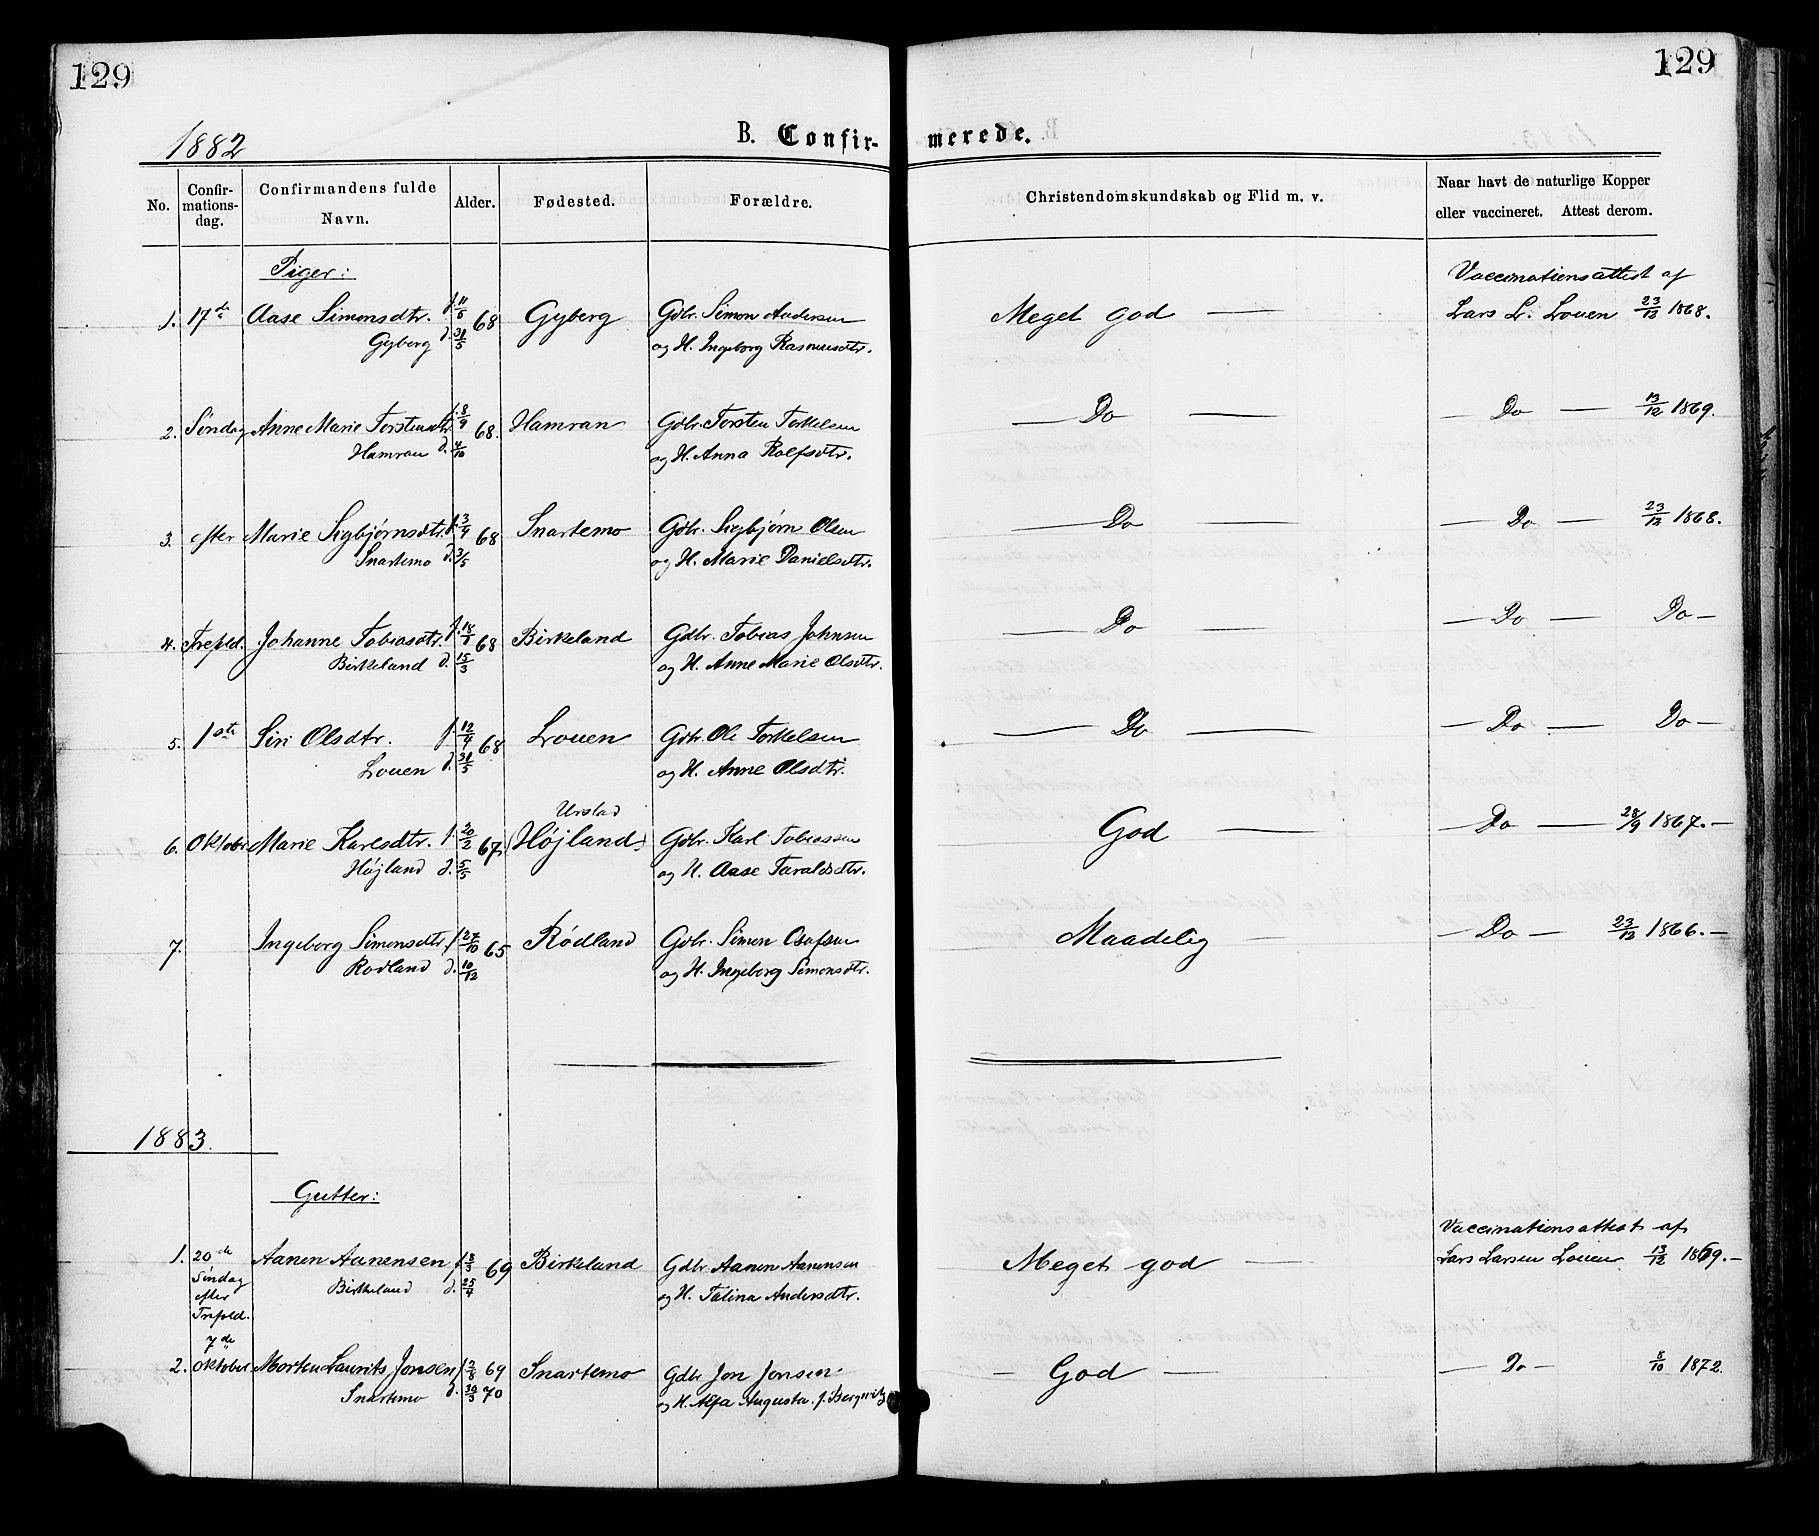 129
129
1882
B. Confir-
merede.
No.
Confir-
mations-
dag.
Confirmandens fulde
Navn.
Alder.
Fødested.
Forældre.
Christendomskundskab og Flid m. v.
Naar havt de naturlige Kopper
eller vaccineret. Attest derom.
Piger:
Vaccinationsattest af
1. 17de Aase Simonsdtr. f. 11/5 68 Gyberg Gdbr. Simon Andersen Meget god — Lars L. Louen 23/12 1868.
Gyberg d. 31/5 og H. Ingeborg Rasmusdtr.
2. Søndag Anne Marie Torstensdtr. f. 8/9 68. Hamran Gdbr. Torsten Torkelsen — Do — — Do — 13/12 1869.
Hamran d. 4/10 og H. Anna Rolfsdtr.
3. efter Marie Sigbjørnsdtr. f. 3/4 68 Snartemo Gdbr. Sigbjørn Olsen — Do — — Do — 23/12 1868.
Snartemo d. 3/5 og H. Marie Danielsdtr.
4. Trefold. Johanne Tobiasdtr. f. 18/1 68 Birkeland Gdbr. Tobias Johnsen — Do — — Do — Do —
Birkeland d. 15/3 og H. Anne Marie Olsdtr.
5. 1ste Siri Olsdtr. f. 12/4 68 Louen Gdbr. Ole Torkelsen — Do — — Do — Do —
Louen d. 31/5 og H. Anne Olsdtr.
Urstad
6. Oktober Marie Karlsdtr. f. 20/2 67. (Højland) Gdbr. Karl Tobiassen God — — Do — 28/9 1867. —
Højland d. 5/5 og H. Aase Taraldsdtr.
7. Ingeborg Simonsdtr. f. 27/10 65 Rødland Gdbr. Simon Osufsen Maadelig — — Do — 23/12 1866. —
Rødland d. 10/12 og H. Ingeborg Simonsdtr.
1883.
Gutter:
Vaccinationsattest af
1. 20de Aanen Aanensen f. 8/3 69 Birkeland Gdbr Aanen Aanensen Meget god — Lars Larsen Louen 13/12 1869. —
Søndag Birkeland d. 25/4 og H. Talina Andersdtr.
efter
Trefold.
7de
2. Oktober. Morten Laurits Jonsen f. 2/8 69 Snartemo Gdbr Jon Jonsen — God — — Do — 8/10 1872.
Snartemo d. 30/3 70 og H. Alfa Augusta f. Bergwitz